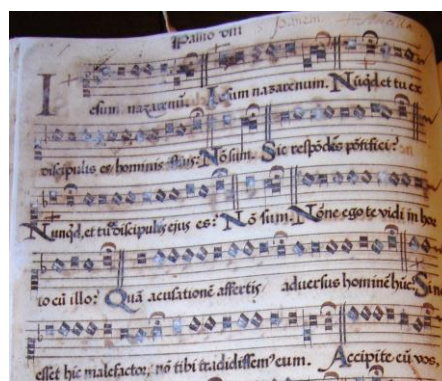 Passio VIII
Iesum nazarenū. Iesum nazarenum. Nūqd et tu ex
discipulis es hominis istius? Nō sum. Sic respōdes pōtifici?
Nunqd, et tu discipulis ejus es? Nō sum. Nōne ego te vidi in hor
to cū illo? Quā acusationē affertis adversus hominē hūc? Si nō
esset hic malefactor, nō tibi tradidissem⁹ eum. Accipite eū vos